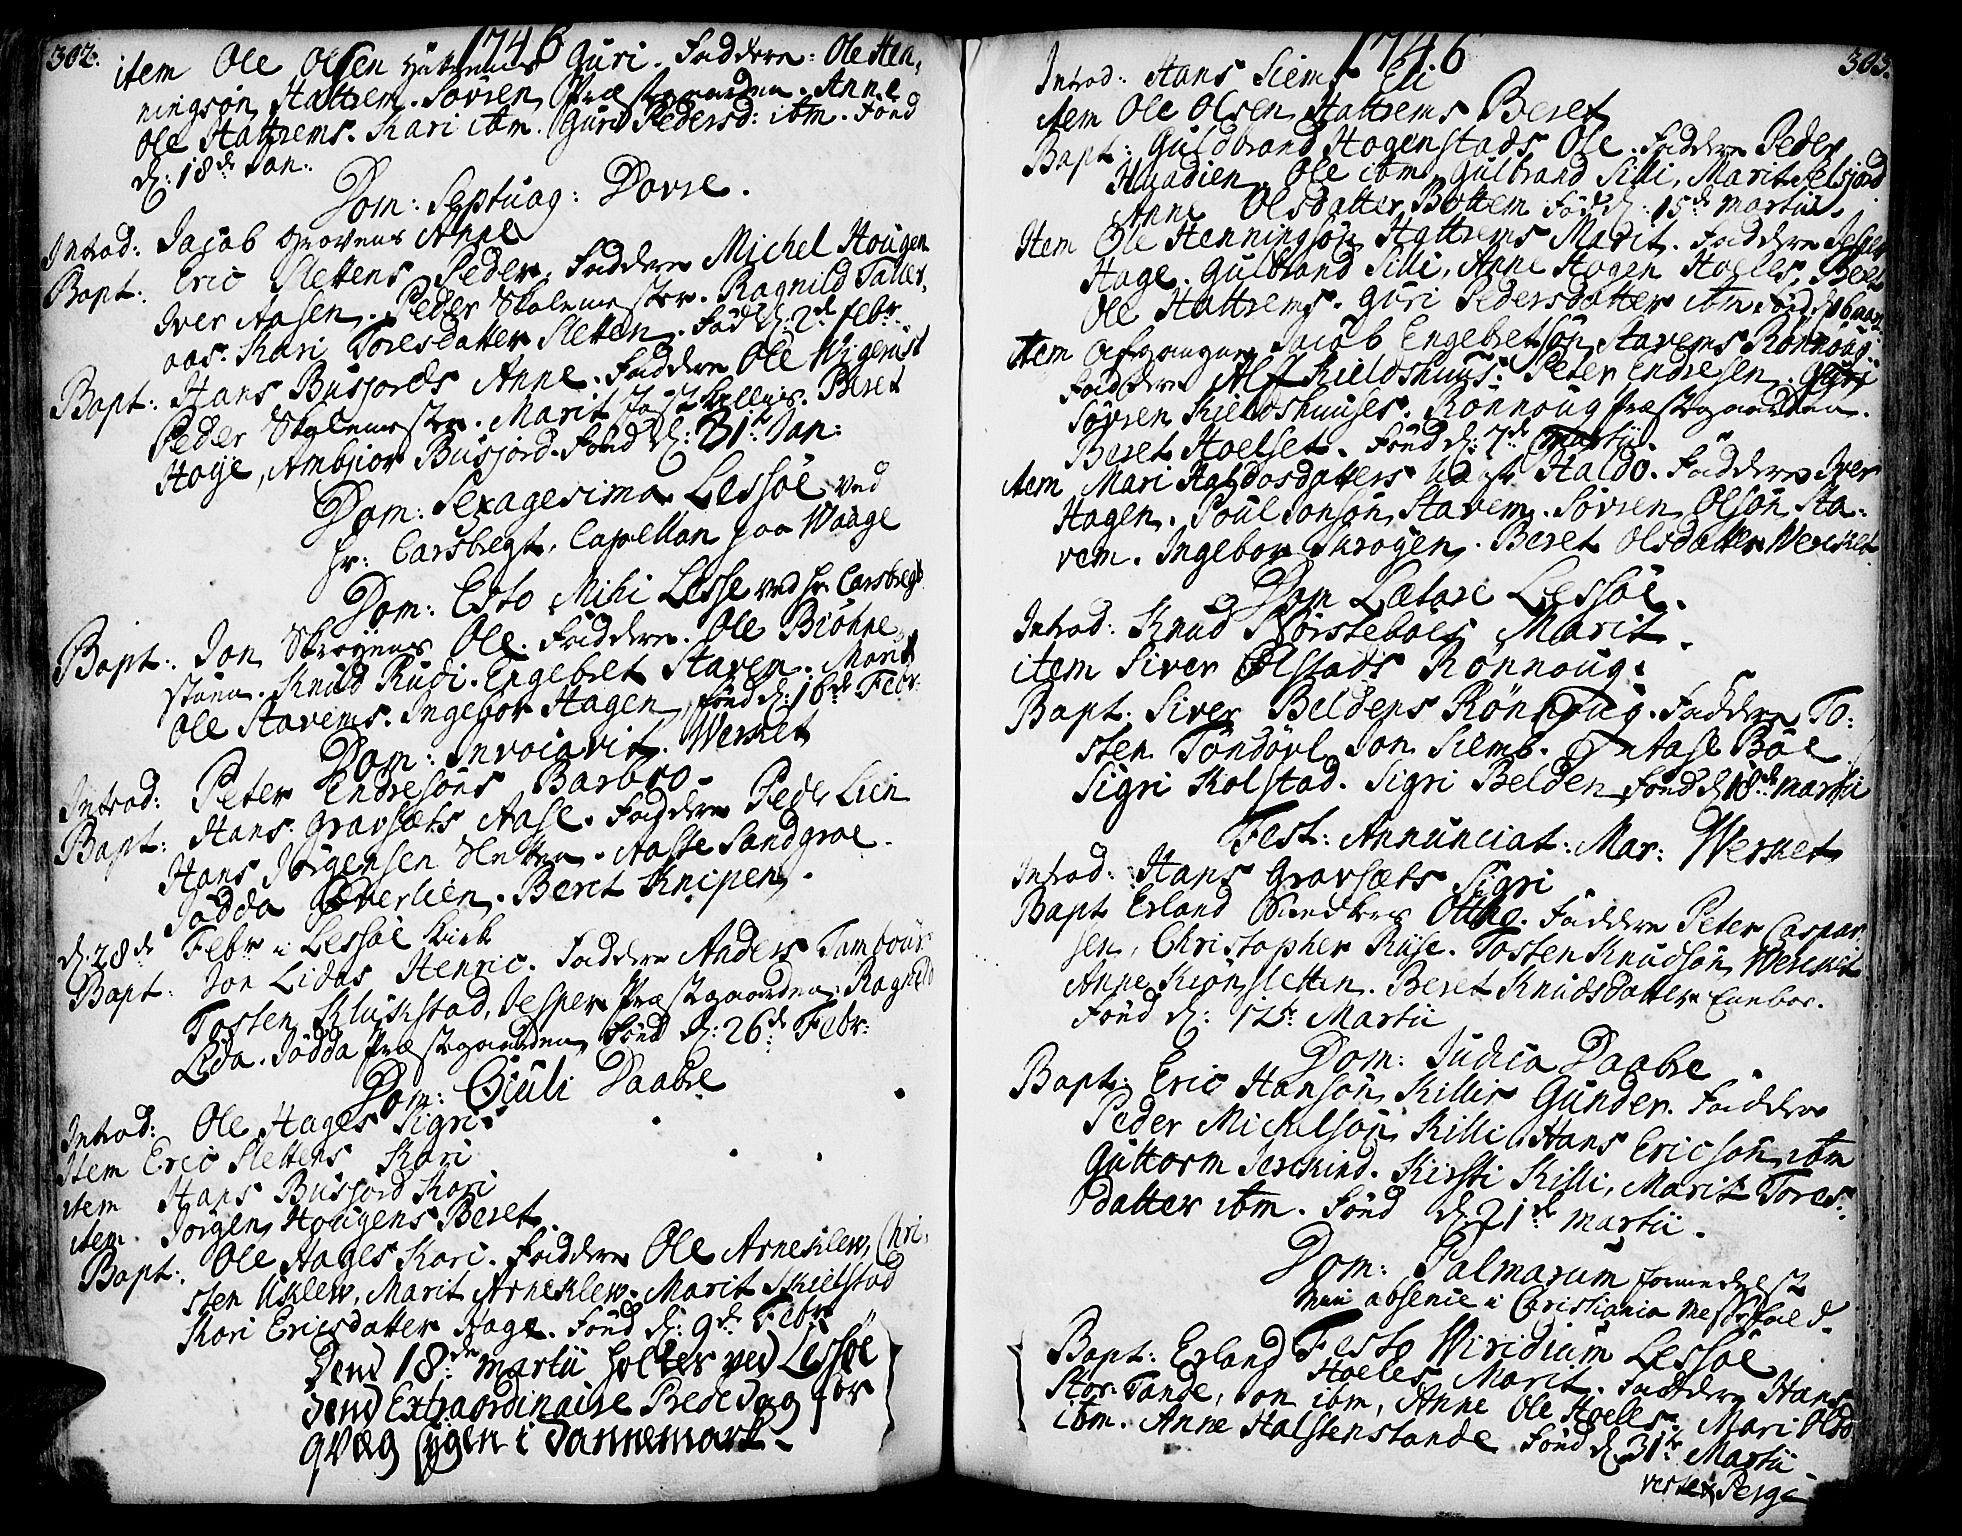 302.
1746
item Ole Olsen Hattrems Guri. Faddere: Ole Hen,
ningsøn Hattrem. Søvren Præstgaarden. Anne
Ole Hattrems. Kari ibm. Guri Pedersd: ibm. Fønd
d: 18de Jan:
Dom: Septuag: Dovre.
Introd: Jacob Grovens Anne
Bapt: Eric Slettens Peder. Faddere Michel Hougen
Iver Aasen. Peder Skolemester. Ragnild Taller,
aas. Kari Toresdatter Sletten. Fød d: 2de Febr.
Bapt: Hans Busjords Anne. Faddere Ole Wigerust
Peder Skolemester. Marit Jost Killies. Beret
Hoye, Ambjor Busjord. Fønd d: 31te Jan:
Dom: Sexagesima Lessøe ved
Hr: Carsbegt, Capellan paa Waage
Dom: Esto Mihi Lesse ved Hr: Carsbegt
Bapt: Jon Skrøyens Ole. Faddere. Ole Biøhne,
stuen. Knud Rudi. Engebret Stavem. Marit
Ole Stavems. Ingebor Hagen, Fønd d: 16de Febr:
Dom: Invocavit. Werket
Introd: Peter Endresøns Barbro.
Bapt: Hans Gravsæts Aase. Faddere Peder Lien
Hans Jørgensen Sletten. Aasse Sandgroe.
Jødda Øverlien. Beret Knipen.
d: 28de Febr i Lessøe Kirke
Bapt: Jon Lidas Henric. Faddere Anders Tambour
Tosten Klukstad, Jesper Præstgaarden. Ragnild
Lida. Jødda Præstgaarden Fønd d: 26de Febr:
Dom: Oculi Daabre
Introd: Ole Hages Sigri.
Item Eric Slettens Kari
item Hans Busjord Kari
item. Jørgen Hougens Beret
Bapt: Ole Hages Kari. Faddere Ole Arneklew, Chri,
sten Uklew, Marit Arneklew. Marit Skielstad
Kari Ericsdatter Hage. Fønd d: 9de Febr
Dend 18de Martii holtes ved Lessøe
dend Extraordinaire Bededag for
qvæg sygen i Dannemark.
303.
1746
Introd: Hans Siems Eli
item Ole Olsen Hattrems Beret
Bapt: Guldbrand Hogenstads Ole. Faddere Peder
Ole ibm, Gulbrand Silli, Marit Selsjord
Anne Olsdatter Bottem Fød d: 15de Martii.
Item Ole Henningsøn Hattrems Marit. Faddere Jesper
Hage. Gulbrand Silli, Anne Hogen Hoeles, Beret
Ole Hattrems. Guri Pedersdatter ibm
Item Afgangne Jacob Engebretsøn Stavems Rønnoug.
Faddere Alf Kieldshuus. Peter Endresen. Guri
Søvren Kieldshuuses. Rønnoug Præstgaarden.
Beret Hoelset. Fønd d: 7de Martii.
item Mari Haldosdatters Haldo. Faddere Iver
Hagen. Poul Jonsøn Stavem. Søvren Olsøn Sta:
vem. Ingebor Skrøyen. Beret Olsdatter Werket
Dom Lætare Lessøe.
Introd: Knud Nørsteboes Marit.
item Siver Ølstads Rønnoug.
Bapt: Siver Beldens Rønnoug. Faddere To:
sten Tøndøvl Jon Siemb. Bøe
Sigri Kolstad. Sigri Belden, Fønd d: 18de Martii
Fest: Annunciat: Mar: Werket
Introd: Hans Gravsæts Sigri
Bapt Erland Otthe. Faddere Peter Caspar
sen, Christopher Riise. Tosten Knudsøn Werket
Anne Kiønsletten. Beret Knudsdatter Eenboe.
Fønd d: 12te Martii
Dom: Judica Daabre
Bapt: Eric Hansøn Killis Gunder. Faddere
Peder Michelsøn Killi Hans Ericsøn ibm
Guttorm Jerekind. Kirsti Killi, Marit Tores:
datter ibm. Fønd d: 21de Martii.
Dom: Palmarum formedelst
min absence i Christiania Messefald.
Festo Viridium Lessøe
Bapt: Erland Hoeles Marit. Faddere Hans
Stor. Tande, Jon ibm, Anne Ole Hoeles, Mari Olsd
ibm. Anne Halstenstande Fønd d: 31te Martii